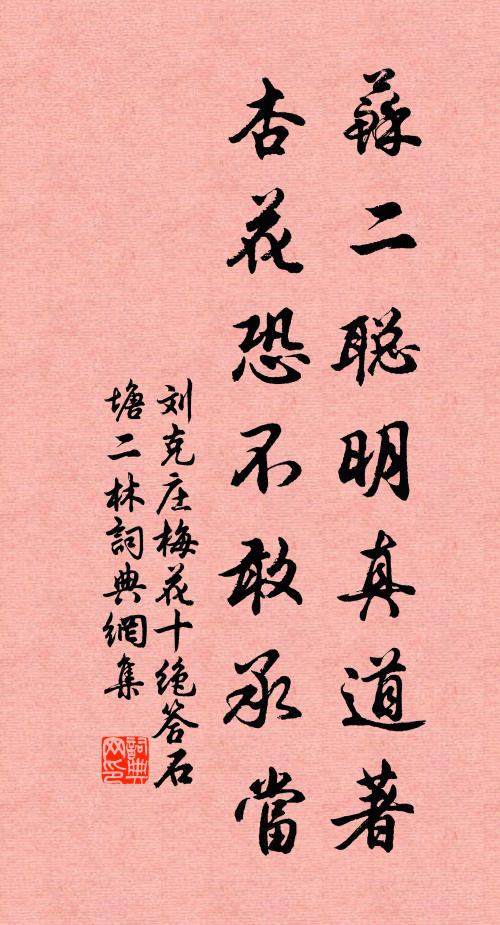 蘇二聪明真道著
杏花恐不敢承當
刘克庄梅花十绝答石
塘二林詞典網集
詞典网印